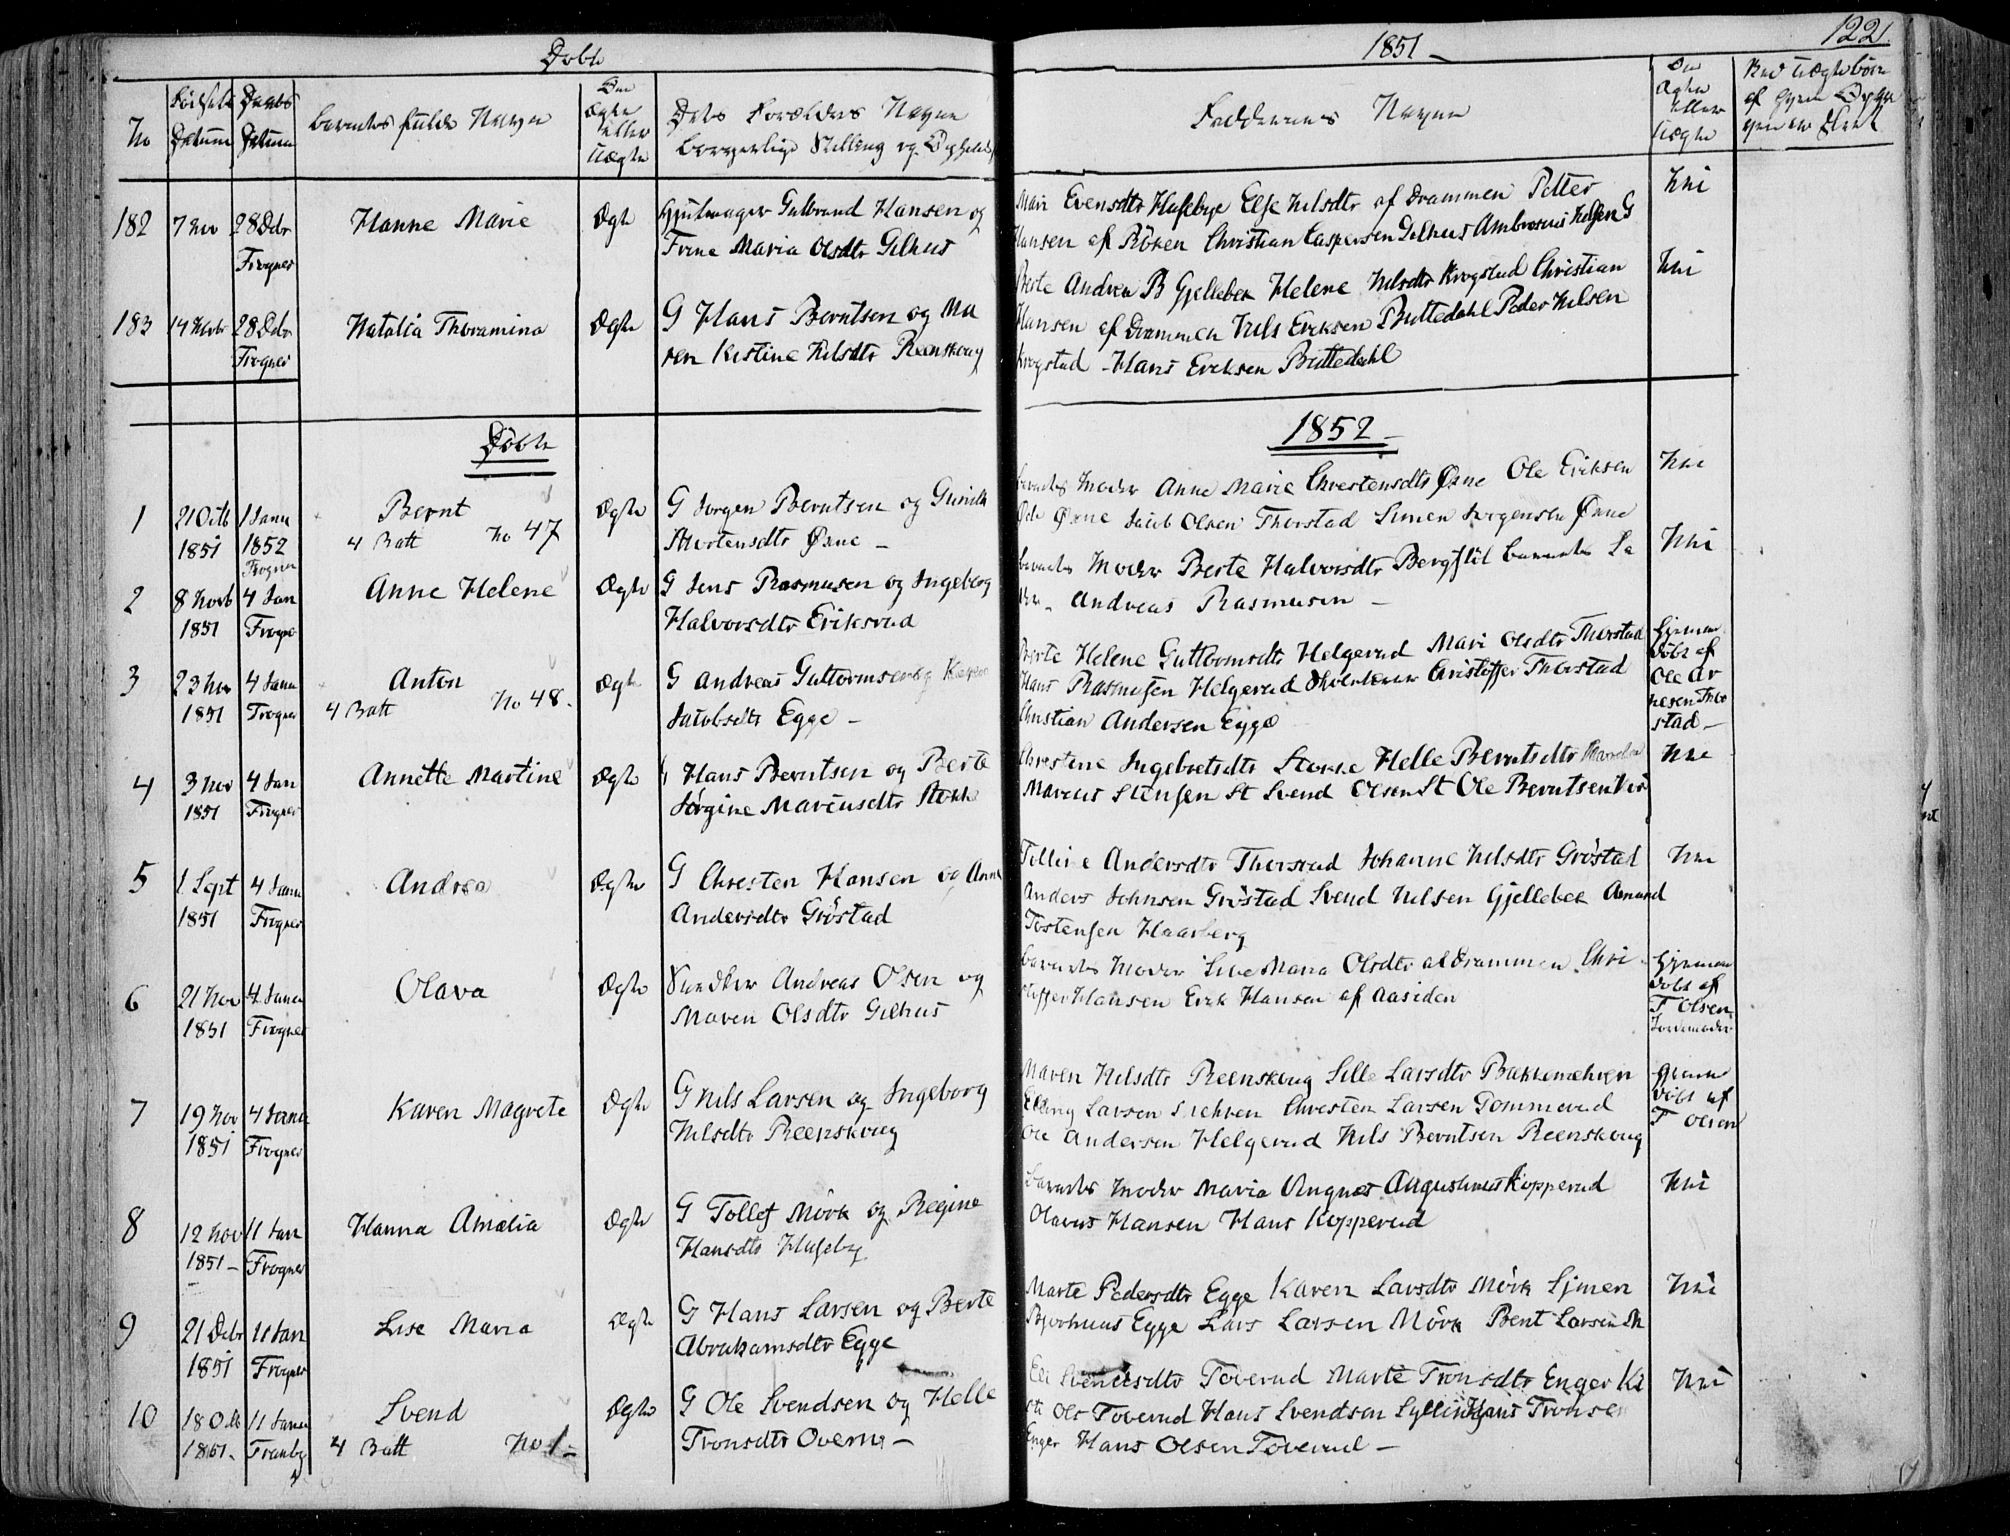 Döbte
1851
122
No
Födsels Datum
Daabs Datum
Barnets fulde Navn
Om Ægte eller Uægte
Dets Forældres Navne
borgerlige Stilling og Opholds
Faddernes Navne
182
7 Nov
28 Dcbr
Frogner
Hanne Marie
Ægte
Gulbrand Hansen og
Trine Maria Olsdtr Gilhus
Mari Evensdtr Husebye Else Nilsdtr af Drammen Petter
Hansen af Röken Christian Caspersen Gilhus Ambrosius Nilsen G
Nei
183
14 Novbr
28 Dcbr
Frogner
Natalia Thoramina
Ægte
G Hans Berntsen og Ma
ren Kistine Nilsdtr Reenskoug
Berte Andrea B Gjellebek Helene Nilsdtr Krogstad Christian
Hansen af Drammen Nils Eriksen Buttedahl Peder Nilsen
Krogstad Hans Eriksen Buttedahl
Nei
Döbte
1852
1
21 Octb
1851
1 Janu
1852
Frogner
Bernt
4 Batt No 47
Ægte
G Jörgen Berntsen og Gunild
Mortensdtr Øxne
Barnets Moder Anne Marie Chrestensdtr Øxne Ole Eriksen
Øxne Jacob Olsen Thorstad Simen Jorgensen Øxne
Nei
2
8 Novb
1851
4 Jan
Frogner
Anne Helene
Ægte
G Jens Rasmusen og Ingeborg
Halvorsdtr Eriksrud
Barnets Moder Berte Halvorsdtr Bergflöt Barnets Fa
der Andreas Rasmusen
Nei
3
23 Nov
1851
4 Janu
Frogner
Anton
4 Batt No 48.
Ægte
G Andreas Guttormsen og Karen
Jacobsdtr Egge
Berte Helene Guttormsdtr Helgerud Mari Olsdtr Thorstad
Hans Rasmusen Helgerud Christoffer Thorstad
Christian Andersen Egge
Hjemme
döbt af
Ole Ar
nesen Thor
stad
4
3 Nov
1851
4 Jan
Frogner
Annette Martine
Ægte
G Hans Berntsen og Berte
Jörgine Mariusdtr Stokke
Christine Ingebretsdtr Stokke Helle Berntsdtr
Marcus Stensen St Svend Olsen St Ole Berntsen
Nei
5
1 Sept
1851
4 Janu
Frogner
Andrea
Ægte
G Chresten Hansen og Anne
Andersdtr Gröstad
Andersdtr Thorsrud Johanne Nilsdtr Gröstad
Anders Johnsen Gröstad Svend Nilsen Gjellebek Amund
Tostensen Haarberg
Nei
6
21 Nov
1851
4 Janu
Frogner
Olava
Ægte
Andreas Olsen og
Maren Olsdtr Gilhus
Barnets Moder Lise Maria Olsdtr af Drammen Chri
stoffer Hansen Erik Hansen af Aasiden
Hjemme
döbt af
T Olsen
Jordemoder
7
19 Nov
1851
4 Janu
Frogner
Karen Magrete
Ægte
G Nils Larsen og Ingeborg
Nilsdtr Reenskoug
Maren Nilsdtr Reenskoug Sille Larsdtr
Larsen Chresten Larsen Dommerud
Ole Andersen Helgerud Nils Berntsen Reenskoug
Hjemme
döbt af
T Olsen
8
12 Nov
1851
11 Jan
Frogner
Hanna Amalia
Ægte
G Tollef Mörk og Regine
Hansdtr Huseby
Barnets Moder Maria Augustinus Kopperud
Olavus Hansen Hans Kopperud
Nei
9
21 Dcbr
1851
11 Jan
Frogner
Lise Maria
Ægte
G Hans Larsen og Berte
Abrahamsdtr Egge
Marte Pedersdtr Egge Karen Larsdtr Mörk Simen
Egge Lars Larsen Mörk Bent Larsen M
Nei
10
18 Octb
1851.
11 Janu
Tranby
Svend
4 Batt No 1
Ægte
G Ole Svendsen og Helle
Tronsdtr Overn
Svendsdtr Toverud Marte Tronsdtr Enger
Ols Toverud Hans Svendsen Sylling Hans Tronsen
Enger Hans Olsen Toverud
Nei